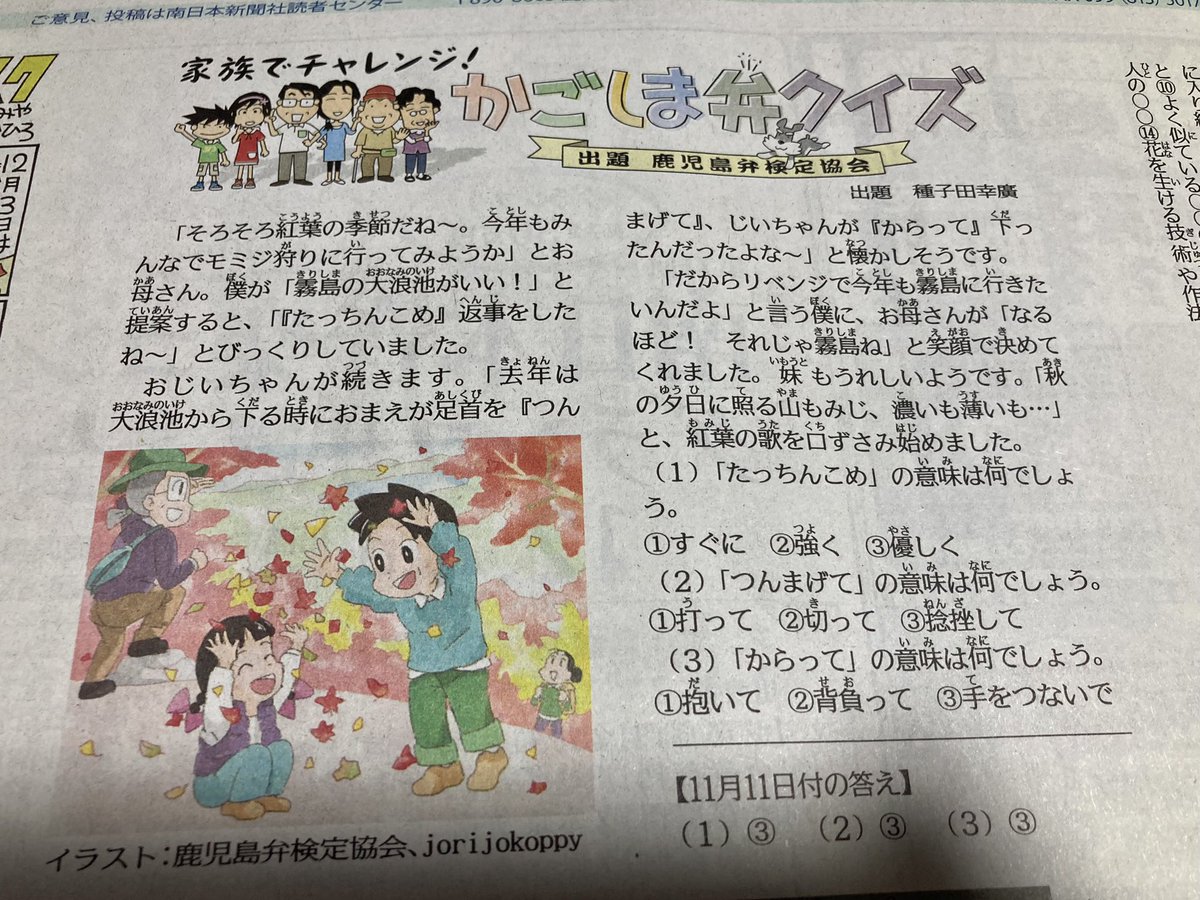 ご意見、投稿は南日本新聞社読者センター
家族でチャレンジ！
かごしま弁クイズ
出題 鹿児島弁検定協会
出題 種子田幸廣
「そろそろ紅葉の季節だね～。今年もみ
んなでモミジ狩りに行ってみようか」とお
母さん。僕が「霧島の大浪池がいい！」と
提案すると、「『たっちんこめ』返事をした
ね～」とびっくりしていました。
おじいちゃんが続きます。「去年は
大浪池から下る時におまえが足首を『つん
まげて』、じいちゃんが『からって』下っ
たんだったよな～」と懐かしそうです。
「だからリベンジで今年も霧島に行きた
いんだよ」と言う僕に、お母さんが「なる
ほど！ それじゃ霧島ね」と笑顔で決めて
くれました。妹もうれしいようです。「秋
の夕日に照る山もみじ、濃いも薄いも…」
と、紅葉の歌を口ずさみ始めました。
（1）「たっちんこめ」の意味は何でしょ
う。
①すぐに ②強く ③優しく
（2）「つんまげて」の意味は何でしょう。
①打って ②切って ③捻挫して
（3）「からって」の意味は何でしょう。
①抱いて ②背負って ③手をつないで
【11月11日付の答え】
（1）③ （2）③ （3）③
イラスト：鹿児島弁検定協会、jorijokoppy
と⑩よく似ている
人の○○⑭花を生ける技術や作法